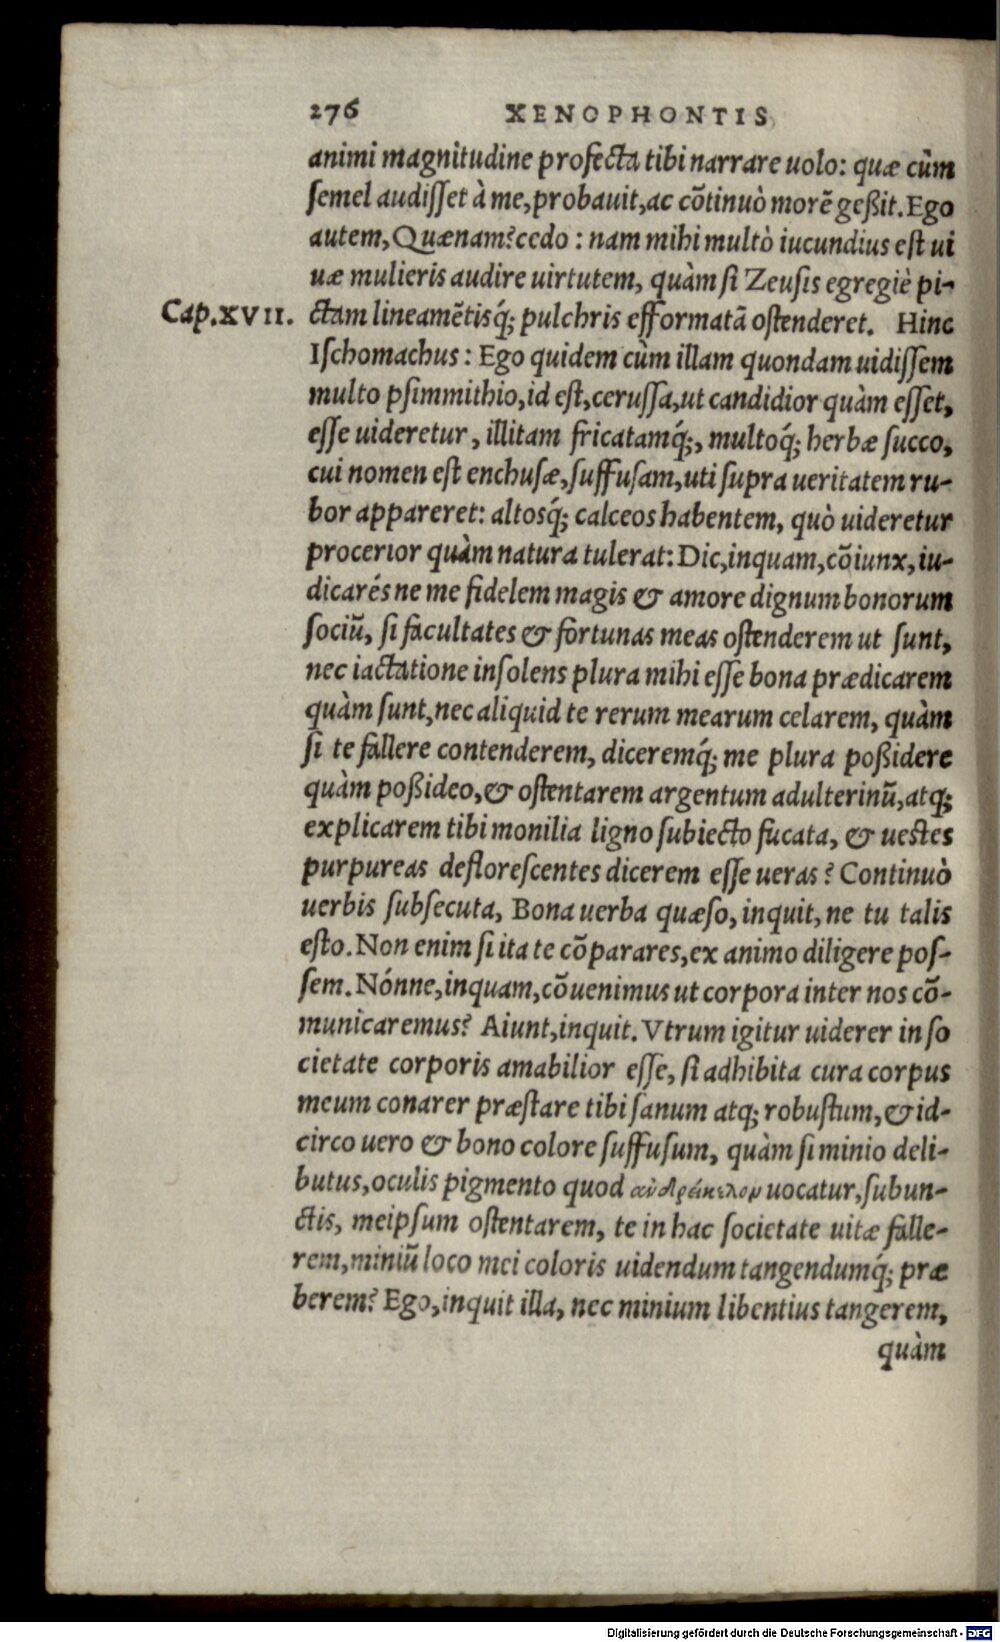 276 XENOPHONTIS
animi magnitudine profecta tibi narrare uolo: quæ cùm
semel audisset à me, probauit, ac cõtinuò morẽ geßit. Ego
autem, Quænam? cedo: nam mihi multò iucundius est ui
uæ mulieris audire uirtutem, quàm si Zeusis egregiè pi-
Cap. XVII. ctam lineamẽtisq́; pulchris efformatã ostenderet. Hinc
Ischomachus: Ego quidem cùm illam quondam uidissem
multo psimmithio, id est, cerussa, ut candidior quàm esset,
esse uideretur, illitam fricatamq́;, multoq́; herbæ succo,
cui nomen est enchusæ, suffusam, uti supra ueritatem ru-
bor appareret: altosq́; calceos habentem, quò uideretur
procerior quàm natura tulerat: Dic, inquam, cõiunx, iu-
dicarésne me fidelem magis & amore dignum bonorum
sociũ, si facultates & fortunas meas ostenderem ut sunt,
nec iactatione insolens plura mihi esse bona prædicarem
quàm sunt, nec aliquid te rerum mearum celarem, quàm
si te fallere contenderem, diceremq́; me plura poßidere
quàm poßideo, & ostentarem argentum adulterinũ, atq;
explicarem tibi monilia ligno subiecto fucata, & uestes
purpureas deflorescentes dicerem esse ueras? Continuò
uerbis subsecuta, Bona uerba quæso, inquit, ne tu talis
esto. Non enim si ita te cõparares, ex animo diligere pos-
sem. Nónne, inquam, cõuenimus ut corpora inter nos cõ-
municaremus? Aiunt, inquit. Vtrum igitur uiderer in so
cietate corporis amabilior esse, si adhibita cura corpus
meum conarer præstare tibi sanum atq; robustum, & id-
circo uero & bono colore suffusum, quàm si minio deli-
butus, oculis pigmento quod uocatur, subun-
ctis, meipsum ostentarem, te in hac societate uitæ falle-
rem, miniũ loco mei coloris uidendum tangendumq́; præ
berem? Ego, inquit illa, nec minium libentius tangerem,
quàm
Digitalisierung gefördert durch die Deutsche Forschungsgemeinschaft - DFG